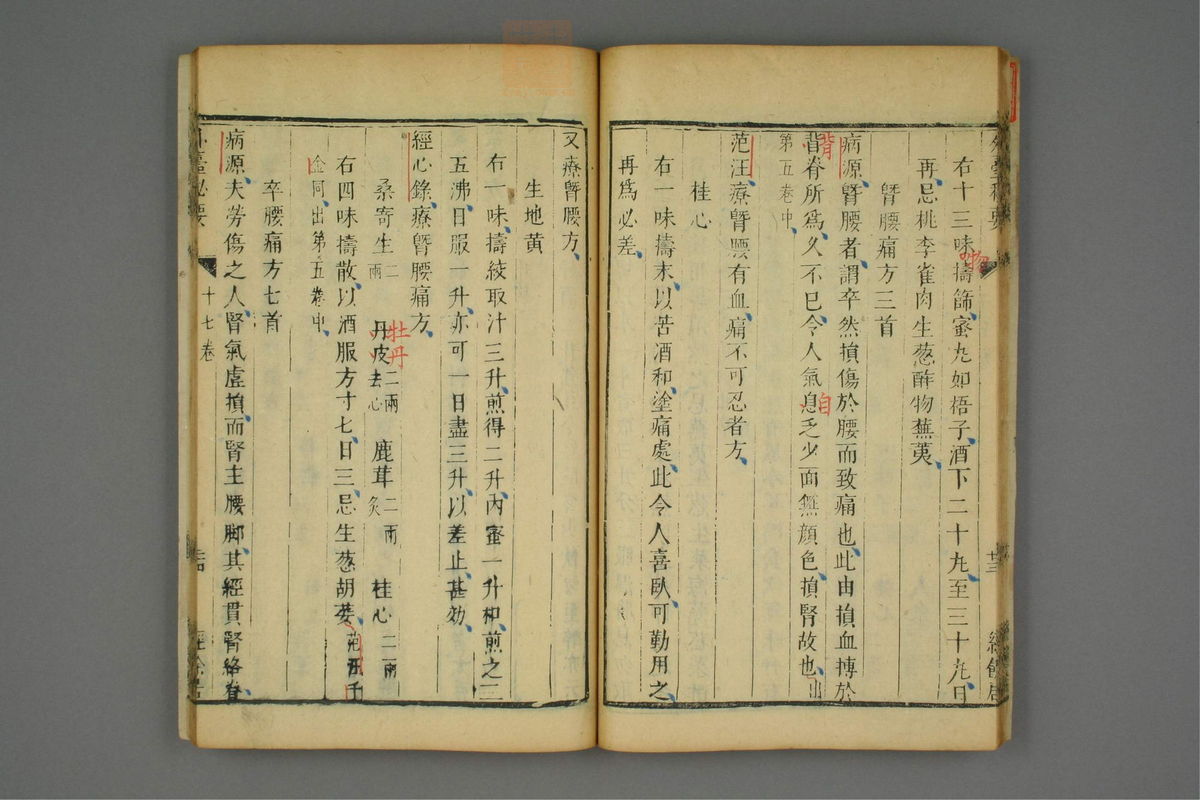 外臺秘要
右十三味擣篩蜜丸如梧子酒下二十九至三十九日
物
再忌桃李雀肉生葱酢物蕪荑
臂腰痛方三首
病源臂腰者謂卒然損傷於腰而致痛也此由損血搏於
背脊所爲久不已令人氣息乏少面無顏色損腎故也出
背
自
第五卷中
范汪療臂腰有血痛不可忍者方
桂心
右一味擣末以苦酒和塗痛處此令人喜臥可勤用之
再爲必差
又療臂腰方
生地黄
右一味擣絞取汁三升煎得二升內蜜一升和煎之三
五沸日服一升亦可一日盡三升以差止甚効
經心錄療臂腰痛方
桑寄生二兩 丹皮二兩去心 鹿茸二兩炙 桂心二兩
牡丹
右四味擣散以酒服方寸七日三忌生葱胡荽范汪千
金同出第五卷中
卒腰痛方七首
病源夫勞傷之人腎氣虛損而腎主腰脚其經貫腎絡脊
外臺秘要 十七卷 二十四 經餘居